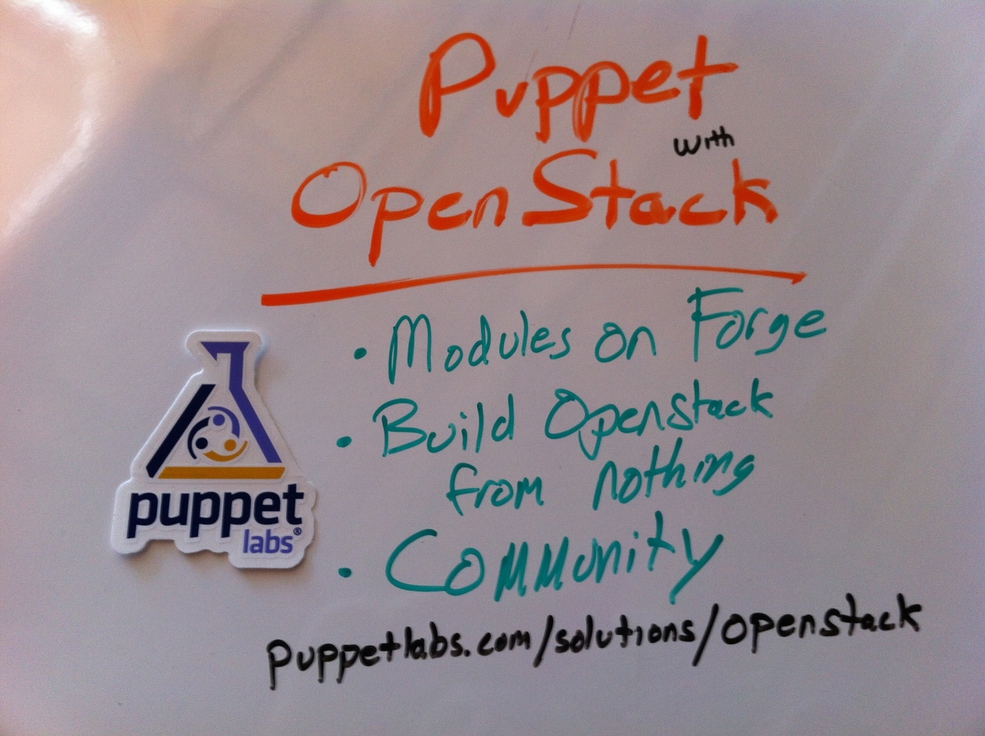 Puppet
with
OpenStack
• Modules on Forge
• Build Openstack
from nothing
• Community
puppet
labs®
puppetlabs.com/solutions/openstack